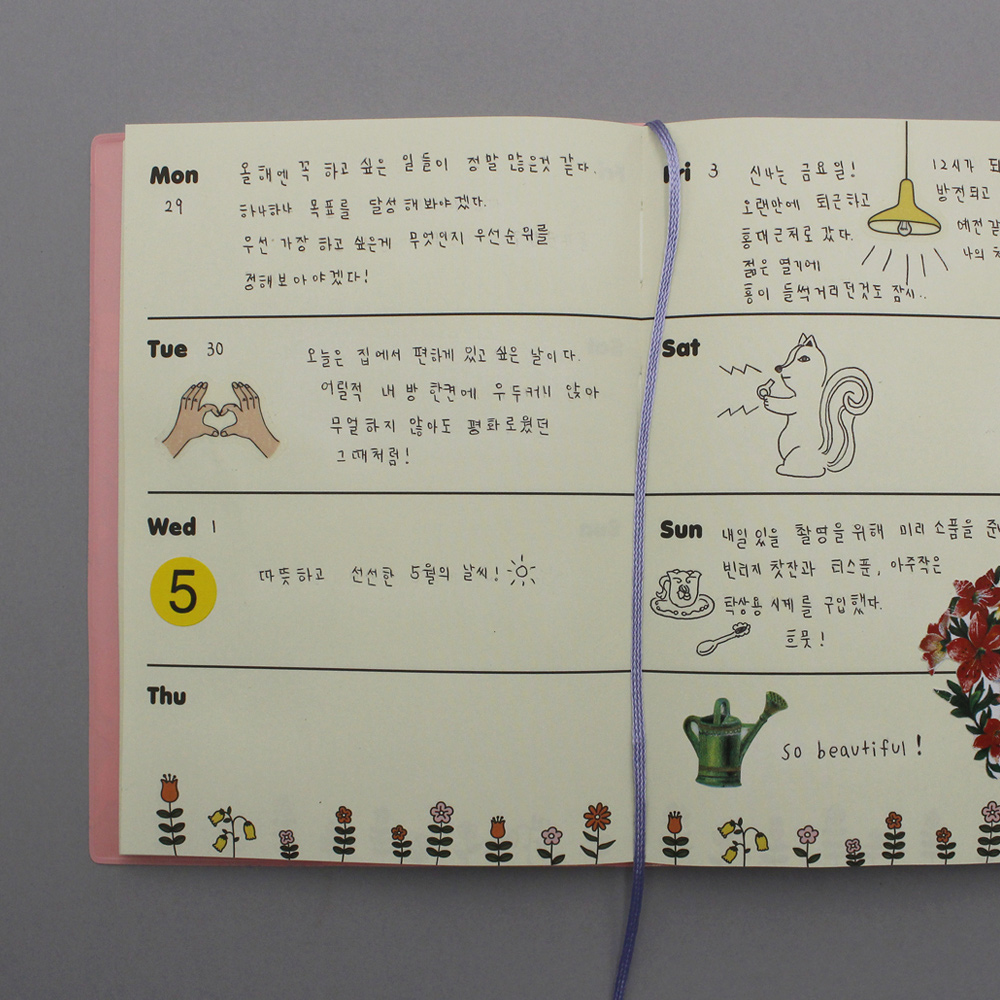 Mon
29
올해엔 꼭 하고 싶은 일들이 정말 많은것 같다.
하나하나 목표를 달성해봐야겠다.
우선 가장 하고 싶은게 무엇인지 우선순위를
정해보아야겠다!
Tue 30
오늘은 집에서 편하게 있고 싶은 날이다.
어릴적 내 방 한켠에 우두커니 앉아
무얼하지 않아도 평화로웠던
그때처럼!
Wed 1
5
따뜻하고 선선한 5월의 날씨!
Thu
Fri 3
신나는 금요일!
오랜만에 퇴근하고
홍대근처로 갔다.
젊은 열기에
흥이 들썩거리던것도 잠시..
12시가 되
방전되고
예전같
나의 체
Sat
Sun
내일 있을 촬영을 위해 미리 소품을 준
빈티지 찻잔과 티스푼, 아주작은
탁상용 시계를 구입했다.
흐뭇!
so beautiful!